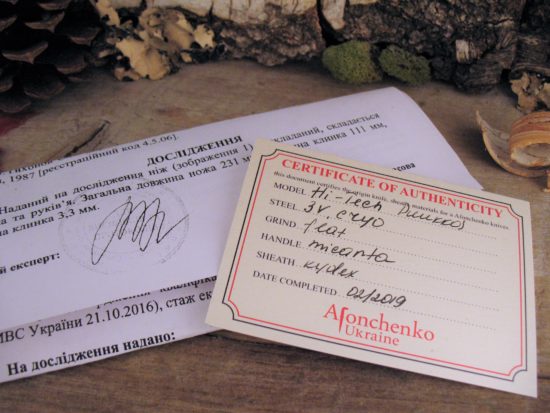 , 1987 [реєстраційний код 4.5.06].
ДОСЛІДЖЕННЯ
Наданий на дослідження ніж (зображення 1), складається
та руків'я. Загальна довжина ножа 231 на клинка 111 мм,
на клинка 3,3 мм.
й експерт:
МВС України 21.10.2016), стаж ек
На дослідження надано:
CERTIFICATE OF AUTHENTICITY
this document certifies the origin knife, materials for a Afonchenko knives
MODEL Hi-Tech Puukko
STEEL 3V cryo
GRIND flat
HANDLE micarta
SHEATH kydex
DATE COMPLETED 02/2019
Afonchenko
Ukraine